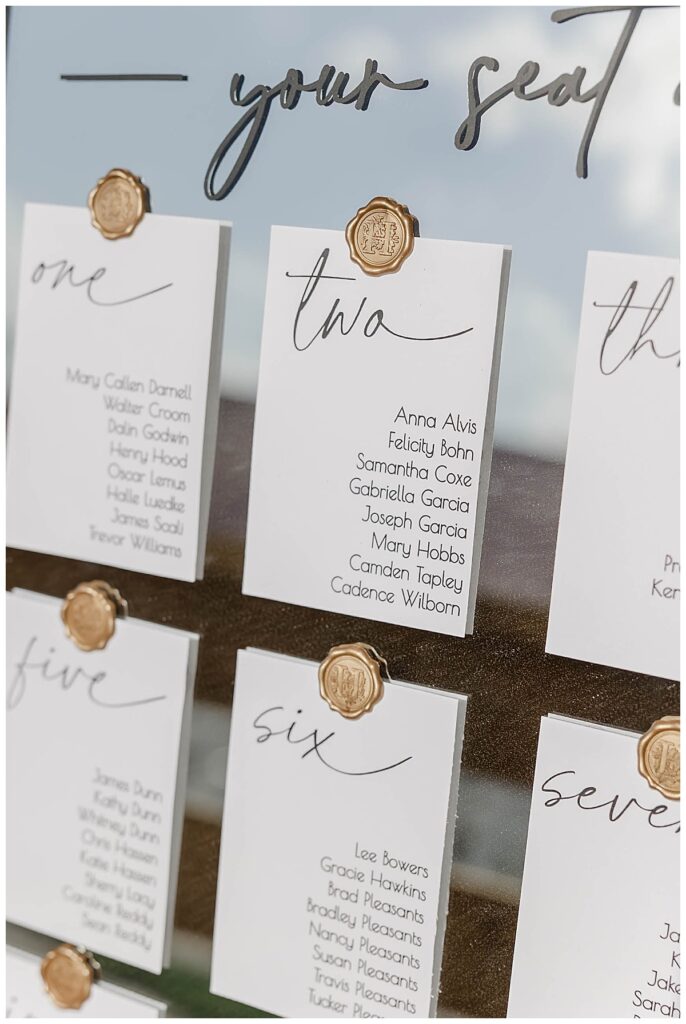 — your seat
one
Mary Callen Darnell
Walter Croom
Dalin Godwin
Henry Hood
Oscar Lemus
Halle Luedke
James Scali
Trevor Williams
two
Anna Alvis
Felicity Bohn
Samantha Coxe
Gabriella Garcia
Joseph Garcia
Mary Hobbs
Camden Tapley
Cadence Wilborn
th
Pr
Ker
five
James Dunn
Kathy Dunn
Whitney Dunn
Chris Hassen
Katie Hassen
Sherry Lacy
Caroline Reddy
Sean Reddy
six
Lee Bowers
Gracie Hawkins
Brad Pleasants
Bradley Pleasants
Nancy Pleasants
Susan Pleasants
Travis Pleasants
Tucker Pleasants
seve
Ja
K
Jake
Sarah